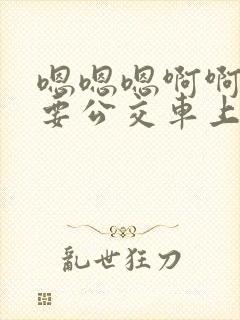 嗯嗯嗯啊啊
要公交車上
亂世狂刀